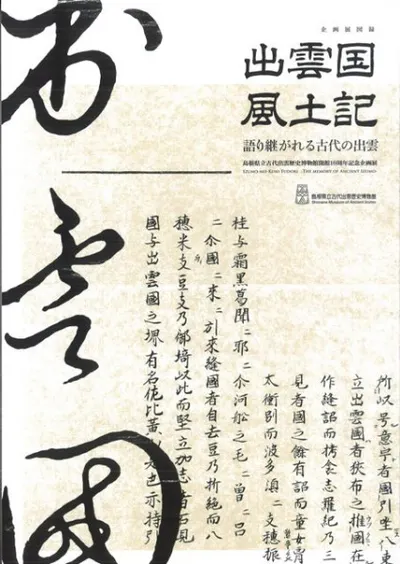 企画展図録
出雲国
風土記
語り継がれる古代の出雲
島根県立古代出雲歴史博物館開館10周年記念企画展
IZUMO NO KUNI FUDOKI : THE MEMORY OF ANCIENT IZUMO
島根県立古代出雲歴史博物館
Shimane Museum of Ancient Izumo
出雲國
所以号意宇者國引坐八束
立出雲國者狭布之推國在
作縫詔而栲衾志羅紀乃三
見者國之餘有詔而童女胷
太衝別而波多湏々支穂振
桂与霜黒葛聞々耶々尒河舩之毛々曽々呂
々尒國々来々引来縫國者自去豆乃折絶而八
穂米支豆支乃御埼以此而堅立加志者石見
國与出雲國之堺有名佐比賣
也亦持引